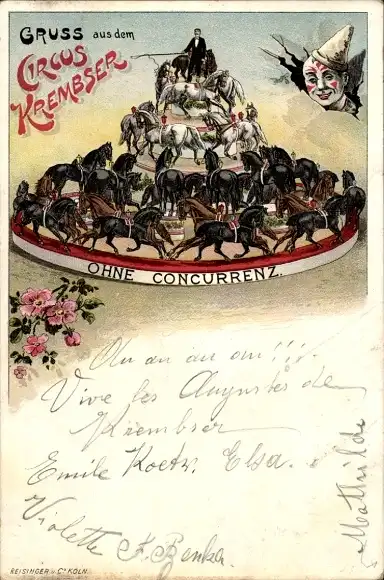 GRUSS aus dem
CIRCUS
KREMBSER
OHNE CONCURRENZ.
au au au!!!
Vive les Augustes de
Krembser
Emile Elsa.
Mathilde
Violette F. Benka
REISINGER & Co KÖLN